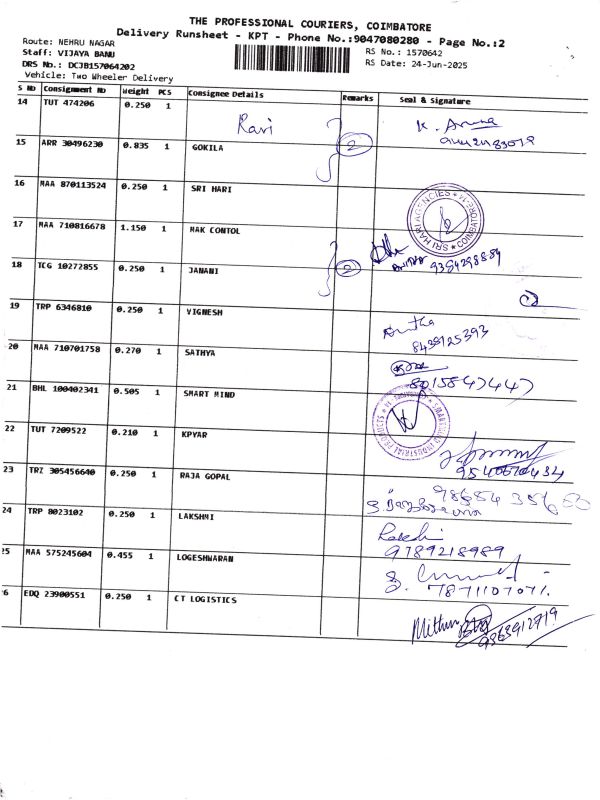 THE PROFESSIONAL COURIERS, COIMBATORE
Delivery Runsheet - KPT - Phone No.:9047080280 - Page No.:2
Route: NEHRU NAGAR
Staff: VIJAYA BANU
DRS No.: DCJB157064202
Vehicle: Two Wheeler Delivery
RS No.: 1570642
RS Date: 24-Jun-2025
S No Consignment No Weight PCS Consignee Details Remarks Seal & Signature
14 TUT 474206 0.250 1 Ravi
15 ARR 30496230 0.835 1 GOKILA 2
16 MAA 870113524 0.250 1 SRI HARI
SRI HARI AGENCIES COIMBATORE
17 MAA 710816678 1.150 1 MAK CONTOL
18 TCG 10272855 0.250 1 JANANI 2
19 TRP 6346810 0.250 1 VIGNESH
8438125393
20 MAA 710701758 0.270 1 SATHYA
8015847447
21 BHL 100402341 0.505 1 SMART MIND
22 TUT 7209522 0.210 1 KPYAR
23 TRZ 305456640 0.250 1 RAJA GOPAL
24 TRP 8023102 0.250 1 LAKSHMI
9789218989
25 MAA 575245604 0.455 1 LOGESHWARAN
7871107071.
26 EDQ 23900551 0.250 1 CT LOGISTICS
Mithun
9363912719